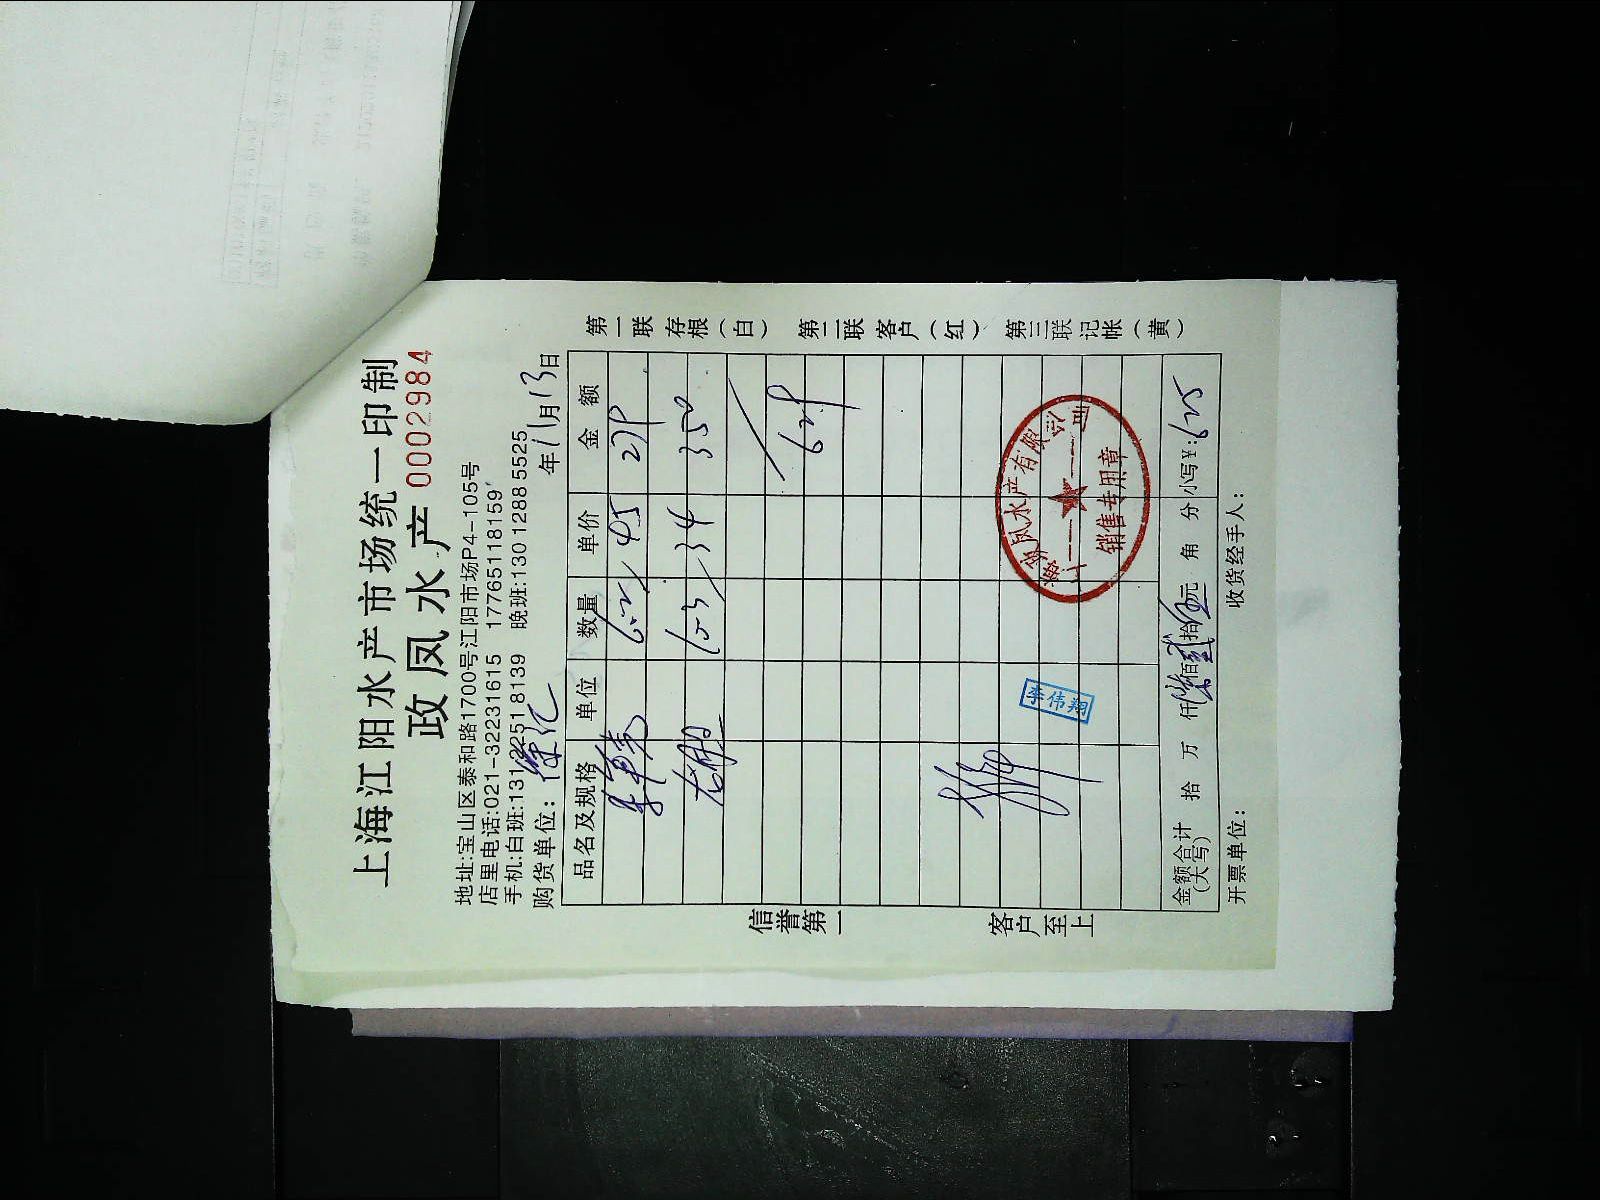 上海江阳水产市场统一印制
政凤水产 0002984
地址:宝山区泰和路1700号江阳市场P4-105号
店里电话:021-32231615 17765118159
手机:白班:131 2251 8139 晚班:130 1288 5525
购货单位: 徐汇 年11月13日
品名及规格 单位 数量 单价 金额
6.2 45 279
10.3 34 350
629
李伟翔
政凤水产有限公司
销售专用章
金额合计(大写) 拾 万 仟 陆佰贰拾伍元 角 分 小写¥:625
开票单位: 收货经手人:
信誉第一 客户至上
第一联存根(白) 第二联客户(红) 第三联记帐(黄)